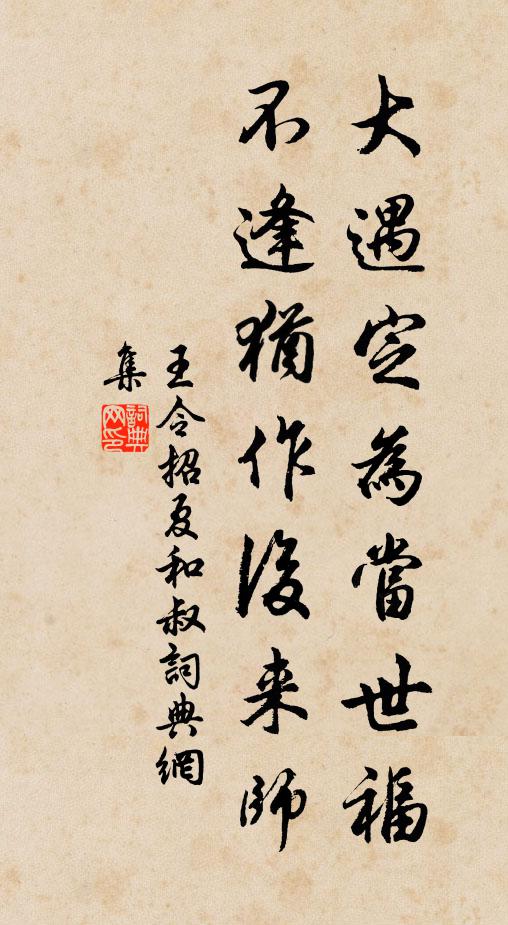 大遇定為當世福
不逢猶作後来師
王令招夏和叔詞典網
集
詞典
网印